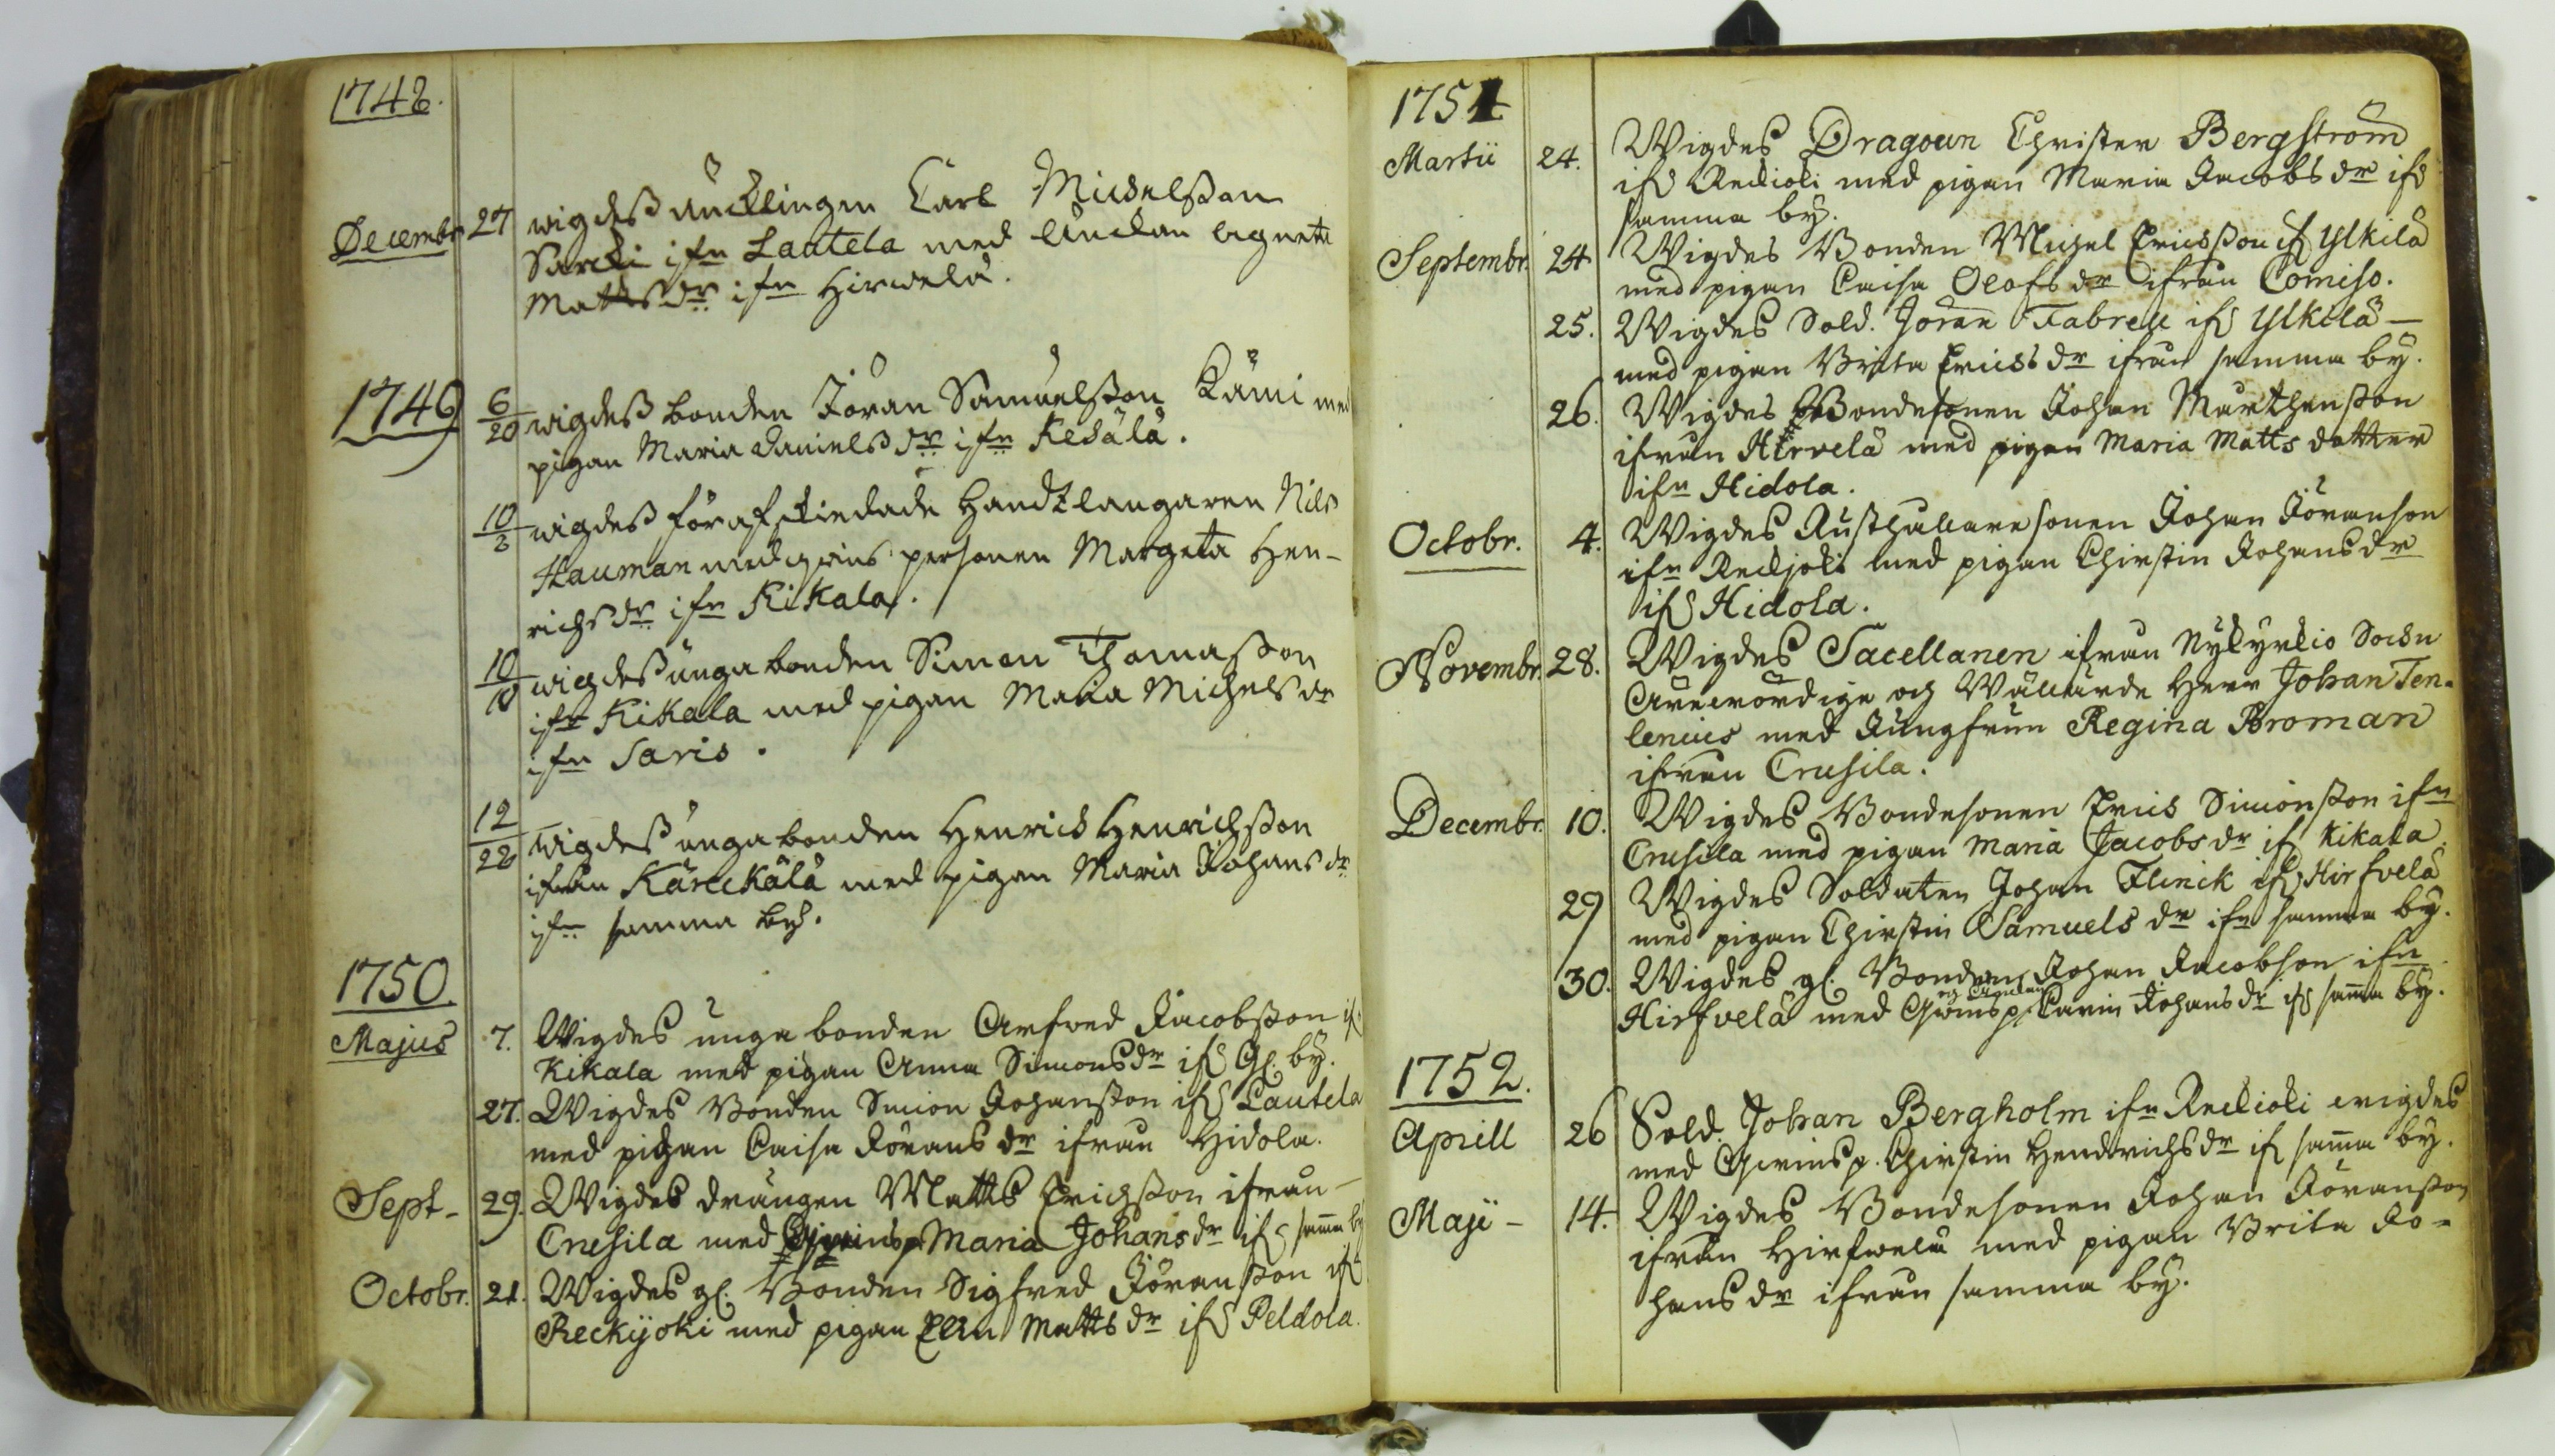 1748.
Decembr 27 wigdeß Encklingen Carl Michelßon
Sarcki ifn Lautela med Enckan Agneta
Matts dr ifn Hirvela.
1749
6/20 wigdeß bonden Jöran Samuelßon Kämi med
pigan Maria Daniels dr ifn Kedälä.
10/2 wigdeß för afskiedade Handtlangaren Nils
Hauman med qvins personen Margeta Hen-
richs dr ifn Kikala.
10/10 wigdeß unga bonden Simon Thomaßon
ifn Kikala med pigan Maria Michels dr
ifn Saris.
12/28 wigdeß unga bonden Henrich Henrichßon
ifrån Kärckälä med pigan Maria Johans dr
ifn samma by.
1750.
Majus 7. Wigdes unga bonden Arfved Jacobßon if
Kikala med pigan Anna Simons dr if Gl. by.
27. Wigdes Bonden Simon Johanßon if Lautela
med pigan Caisa Jörans dr ifrån Hidola.
Sept- 29. Wigdes drängen Matts Erichßon ifrån-
Crusila med Qwinsp. Maria Johans dr if sam̄a by
Octobr. 21. Wigdes gl. Bonden Sigfred Jöranßon if
Reckijoki med pigan Elin Matts dr if Peldola.
1751
Martii 24. Wigdes Dragoun Christer Bergström
if Reckioki med pigan Maria Jacobs dr if
samma by.
Septembr. 24 Wigdes Bonden Michel Ericsßon if Ylkilä
med pigan Caisa Olofs dr ifrån Comiso.
25. Wigdes Sold. Jöran Fabrell if Ylkilä-
med pigan Britta Erics dr ifrån samma by.
26. Wigdes Bondesonen Johan Mårthenßon
ifrån Hirvelä med pigan Maria Matts dotter
ifn Hidola.
Octobr. 4. Wigdes Rusthållare sonen Johan Jöranson
ifn Reckjoki med pigan Chirstin Johans dr
if Hidola.
Novembr. 28. Wigdes Sacellanen ifrån Nykyrkio Sockn
Ärewördige och Wällärde Herr Johan Ten-
lenius med Jungfrun Regina Broman
ifrån Crusila.
Decembr. 10. Wigdes Bondesonen Erics Simonßon ifn
Crusila med pigan Maria Jacobs dr if Kikala.
29 Wigdes Soldaten Johan Flinck if Hirfvelä
med pigan Chirstin Samuels dr ifn samma by.
30. Wigdes gl. Bonden Johan Jacobson ifn
Hirfvelä med Qwinsp. Carin Johans dr if sam̄a by.
1752.
Aprill 26 Sold. Johan Bergholm ifn Reckioki wigdes
med Qwinsp. Chirstin Hendrichs dr if sam̄a by.
Maji- 14. Wigdes Bondesonen Johan Jöranßon
ifrån Hirfwela med pigan Brita Jo-
hans dr ifrån samma by.